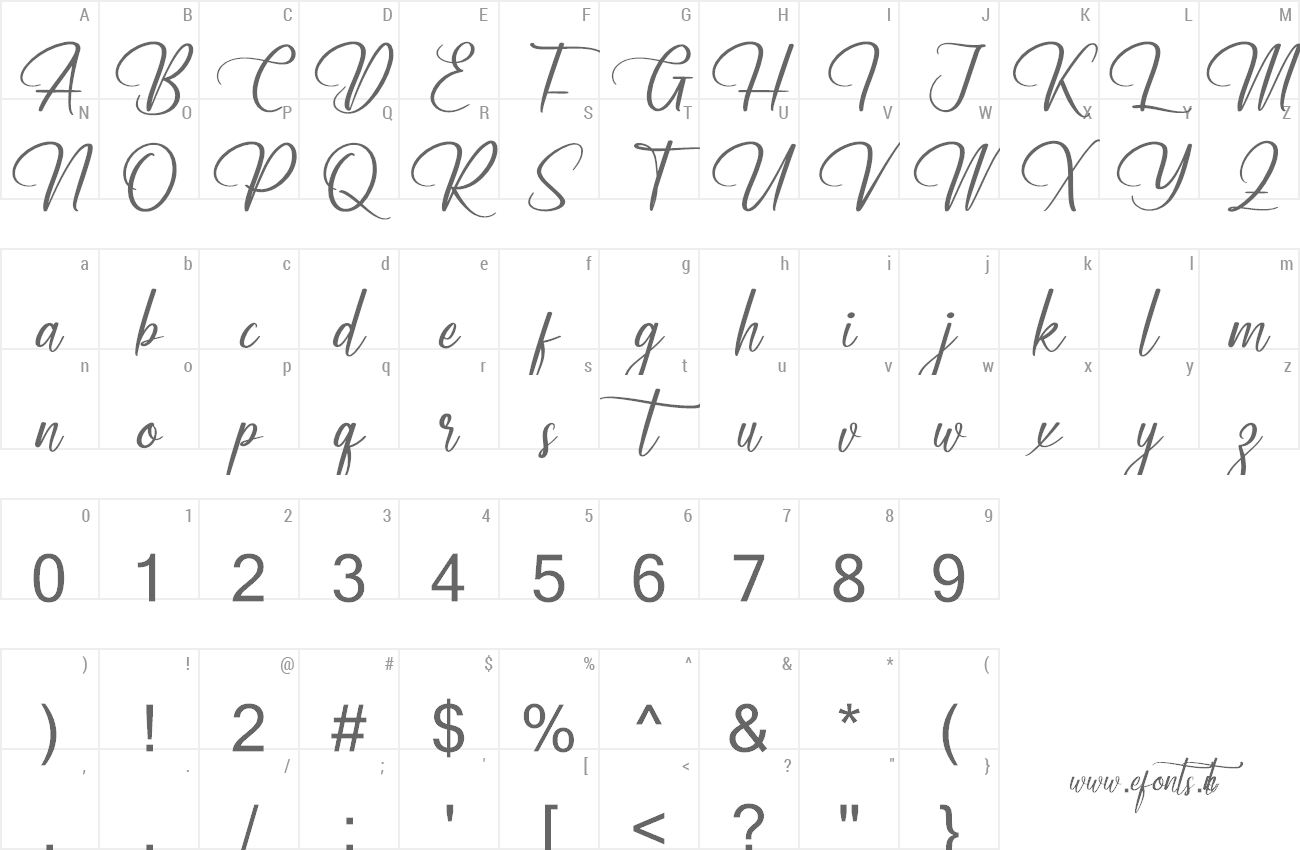 A B C D E F G H I J K L M
A B C D E F G H I J K L M
N O P Q R S T U V W X Y Z
N O P Q R S T U V W X Y Z
a b c d e f g h i j k l m
a b c d e f g h i j k l m
n o p q r s t u v w x y z
n o p q r s t u v w x y z
0 1 2 3 4 5 6 7 8 9
0 1 2 3 4 5 6 7 8 9
) ! @ # $ % ^ & * (
) ! 2 # $ % ^ & * (
, . / ; ' [ < ? " }
, . / ; ' [ < ? " }